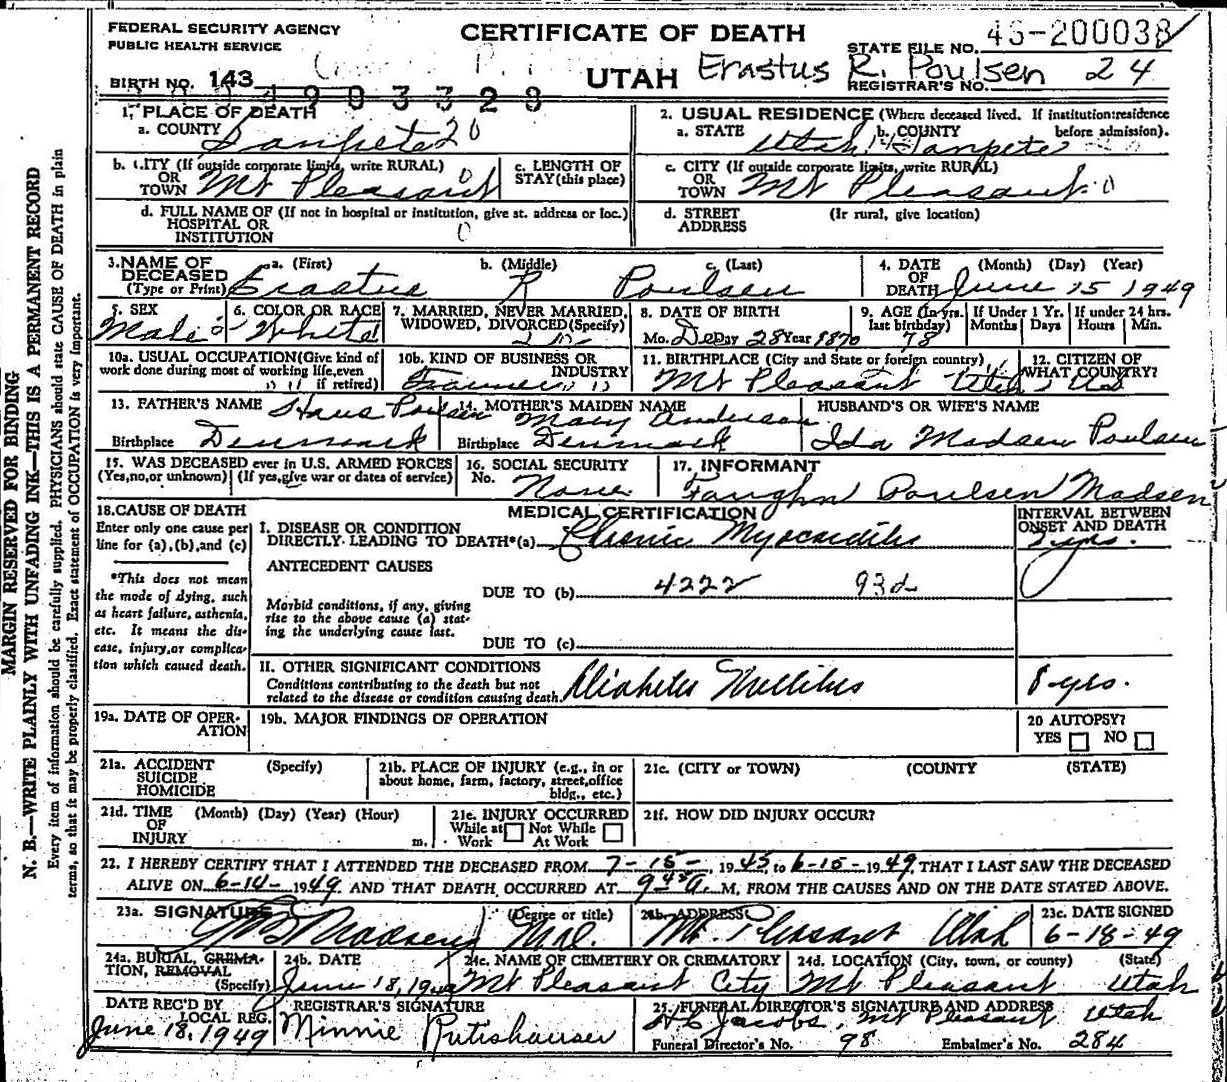 FEDERAL SECURITY AGENCY
PUBLIC HEALTH SERVICE
CERTIFICATE OF DEATH
STATE FILE NO. 4S-200038
BIRTH NO. 143
4903329
UTAH Erastus R. Poulsen 24
REGISTRAR'S NO.
1. PLACE OF DEATH
a. COUNTY Sanpete 20
2. USUAL RESIDENCE (Where deceased lived. If institution:residence before admission).
a. STATE Utah b. COUNTY Sanpete
b. CITY (If outside corporate limits, write RURAL) OR TOWN Mt Pleasant 0
c. LENGTH OF STAY (this place)
c. CITY (If outside corporate limits, write RURAL) OR TOWN Mt Pleasant 0
d. FULL NAME OF (If not in hospital or institution, give st. address or loc.) HOSPITAL OR INSTITUTION 0
d. STREET ADDRESS (If rural, give location)
3. NAME OF DECEASED (Type or Print) a. (First) Erastus b. (Middle) R c. (Last) Poulsen
4. DATE OF DEATH (Month) (Day) (Year) June 15 1949
5. SEX Male
6. COLOR OR RACE White
7. MARRIED, NEVER MARRIED, WIDOWED, DIVORCED(Specify)
8. DATE OF BIRTH Mo. Dec Day 28 Year 1870
9. AGE (In yrs. last birthday) 78
If Under 1 Yr. Months Days
If under 24 hrs. Hours Min.
10a. USUAL OCCUPATION(Give kind of work done during most of working life, even if retired)
10b. KIND OF BUSINESS OR INDUSTRY Farmer
11. BIRTHPLACE (City and State or foreign country) Mt Pleasant Utah
12. CITIZEN OF WHAT COUNTRY? US
13. FATHER'S NAME Hans Poulsen
Birthplace Denmark
14. MOTHER'S MAIDEN NAME Mary Anderson
Birthplace Denmark
HUSBAND'S OR WIFE'S NAME
Ida Madsen Poulsen
15. WAS DECEASED ever in U.S. ARMED FORCES
(Yes,no,or unknown) (If yes,give war or dates of service)
16. SOCIAL SECURITY No. None
17. INFORMANT
Faughn Poulsen Madsen
18. CAUSE OF DEATH
Enter only one cause per line for (a),(b),and (c)
*This does not mean the mode of dying, such as heart failure, asthenia, etc. It means the disease, injury,or complication which caused death.
MEDICAL CERTIFICATION
INTERVAL BETWEEN ONSET AND DEATH
I. DISEASE OR CONDITION DIRECTLY LEADING TO DEATH*(a) Chronic Myocarditis yrs.
ANTECEDENT CAUSES
DUE TO (b) 4222 93d
Morbid conditions, if any, giving rise to the above cause (a) stating the underlying cause last.
DUE TO (c)
II. OTHER SIGNIFICANT CONDITIONS
Conditions contributing to the death but not related to the disease or condition causing death. Diabetes Mellitus 8 yrs.
19a. DATE OF OPERATION
19b. MAJOR FINDINGS OF OPERATION
20 AUTOPSY? YES NO
21a. ACCIDENT SUICIDE HOMICIDE (Specify)
21b. PLACE OF INJURY (e.g., in or about home, farm, factory, street,office bldg., etc.)
21c. (CITY or TOWN) (COUNTY) (STATE)
21d. TIME OF INJURY (Month) (Day) (Year) (Hour) m.
21e. INJURY OCCURRED While at Work Not While At Work
21f. HOW DID INJURY OCCUR?
22. I HEREBY CERTIFY THAT I ATTENDED THE DECEASED FROM 7-15-, 1945, to 6-15-1949, THAT I LAST SAW THE DECEASED
ALIVE ON 6-14-1949. AND THAT DEATH OCCURRED AT 9 45 a. M, FROM THE CAUSES AND ON THE DATE STATED ABOVE.
23a. SIGNATURE (Degree or title) Madsen M.D.
23b. ADDRESS Mt. Pleasant Utah
23c. DATE SIGNED 6-18-49
24a. BURIAL, CREMATION, REMOVAL (Specify)
24b. DATE June 18, 1949
24c. NAME OF CEMETERY OR CREMATORY Mt Pleasant City
24d. LOCATION (City, town, or county) (State) Mt Pleasant Utah
DATE REC'D BY LOCAL REG. June 18, 1949
REGISTRAR'S SIGNATURE Minnie Rutishauser
25. FUNERAL DIRECTOR'S SIGNATURE AND ADDRESS Jacobs, Mt Pleasant Utah
Funeral Director's No. 98 Embalmer's No. 284
MARGIN RESERVED FOR BINDING
N. B.—WRITE PLAINLY WITH UNFADING INK—THIS IS A PERMANENT RECORD
Every item of information should be carefully supplied. PHYSICIANS should state CAUSE OF DEATH in plain
terms, so that it may be properly classified. Exact statement of OCCUPATION is very important.